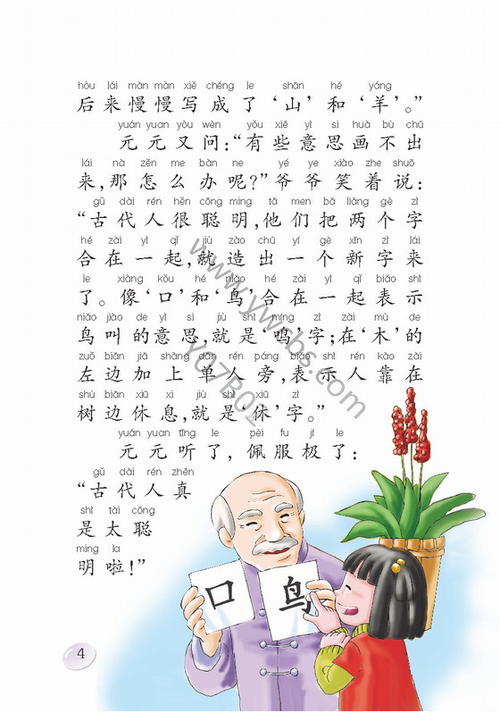 hòu lái màn màn xiě chéng le shān hé yáng
后来慢慢写成了‘山’和‘羊’。”
yuán yuan yòu wèn yǒu xiē yì si huà bù chū
元元又问：“有些意思画不出
lái nà zěn me bàn ne yé ye xiào zhe shuō
来，那怎么办呢？”爷爷笑着说：
gǔ dài rén hěn cōng míng tā men bǎ liǎng gè zì
“古代人很聪明，他们把两个字
hé zài yì qǐ jiù zào chū yí gè xīn zì lái
合在一起，就造出一个新字来
le xiàng kǒu hé niǎo hé zài yì qǐ biǎo shì
了。像‘口’和‘鸟’合在一起表示
niǎo jiào de yì si jiù shì míng zì zài mù de
鸟叫的意思，就是‘鸣’字；在‘木’的
zuǒ biān jiā shàng dān rén páng biǎo shì rén kào zài
左边加上单人旁，表示人靠在
shù biān xiū xi jiù shì xiū zì
树边休息，就是‘休’字。”
yuán yuan tīng le pèi fu jí le
元元听了，佩服极了：
gǔ dài rén zhēn
“古代人真
shì tài cōng
是太聪
míng la
明啦！”
口 鸟
4